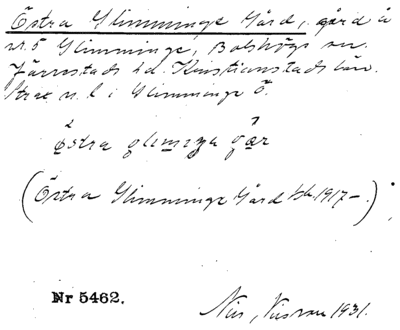 Östra Glimminge Gård, gård å
nr 5 Glimminge, Bolshögs sn.
Järrestads hd. Kristianstads län.
Strax n. l i Glimminge Ö.
östra glemiŋa gær
(Östra Glimminge Gård 1917–)
Nr 5462.
1931.